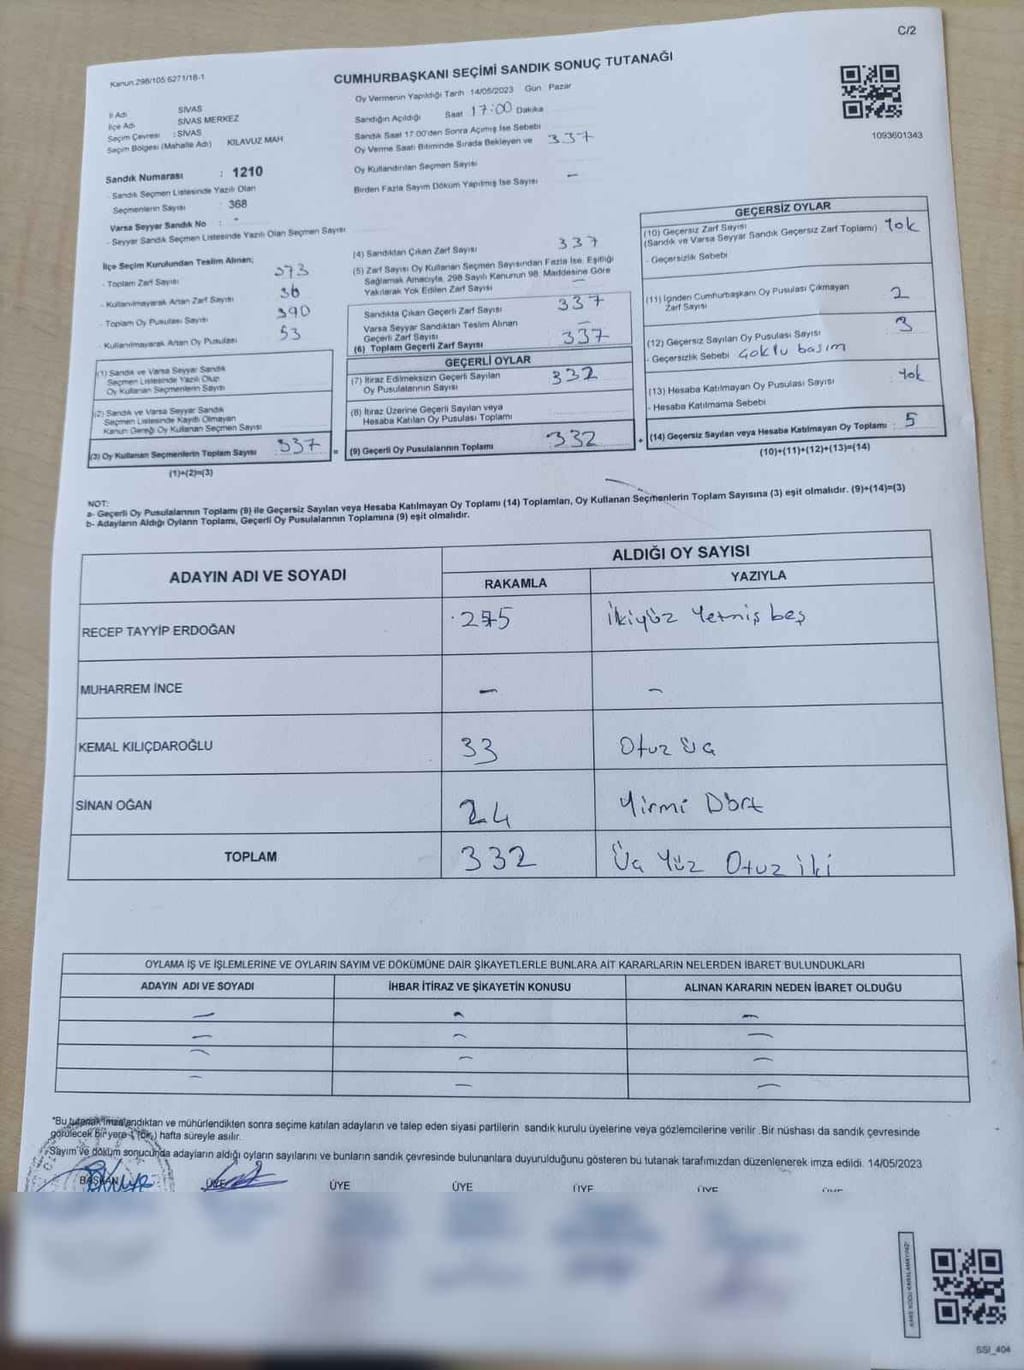 C/2
Kanun 298/105 6271/18-1
CUMHURBAŞKANI SEÇİMİ SANDIK SONUÇ TUTANAĞI
Oy Vermenin Yapıldığı Tarih 14/05/2023 Gün Pazar
İl Adı SİVAS
İlçe Adı SİVAS MERKEZ
Seçim Çevresi : SİVAS
Seçim Bölgesi (Mahalle Adı) KILAVUZ MAH
Sandığın Açıldığı Saat 17:00 Dakika
Sandık Saat 17:00'den Sonra Açılmış İse Sebebi
Oy Verme Saati Bitiminde Sırada Bekleyen ve 337
Oy Kullandırılan Seçmen Sayısı
Birden Fazla Sayım Döküm Yapılmış İse Sayısı –
1093601343
Sandık Numarası : 1210
- Sandık Seçmen Listesinde Yazılı Olan
Seçmenlerin Sayısı : 368
Varsa Seyyar Sandık No : -
- Seyyar Sandık Seçmen Listesinde Yazılı Olan Seçmen Sayısı
İlçe Seçim Kurulundan Teslim Alınan;
- Toplam Zarf Sayısı 373
- Kullanılmayarak Artan Zarf Sayısı 36
- Toplam Oy Pusulası Sayısı 390
- Kullanılmayarak Artan Oy Pusulası 53
(1) Sandık ve Varsa Seyyar Sandık
Seçmen Listesinde Yazılı Olup
Oy Kullanan Seçmenlerin Sayısı
(2) Sandık ve Varsa Seyyar Sandık
Seçmen Listesinde Kayıtlı Olmayan
Kanun Gereği Oy Kullanan Seçmen Sayısı
(3) Oy Kullanan Seçmenlerin Toplam Sayısı 337
(1)+(2)=(3)
(4) Sandıktan Çıkan Zarf Sayısı 337
(5) Zarf Sayısı Oy Kullanan Seçmen Sayısından Fazla İse, Eşitliği
Sağlamak Amacıyla, 298 Sayılı Kanunun 98. Maddesine Göre
Yakılarak Yok Edilen Zarf Sayısı –
Sandıkta Çıkan Geçerli Zarf Sayısı 337
Varsa Seyyar Sandıktan Teslim Alınan
Geçerli Zarf Sayısı –
(6) Toplam Geçerli Zarf Sayısı 337
GEÇERLİ OYLAR
(7) İtiraz Edilmeksizin Geçerli Sayılan
Oy Pusulalarının Sayısı 332
(8) İtiraz Üzerine Geçerli Sayılan veya
Hesaba Katılan Oy Pusulası Toplamı
= (9) Geçerli Oy Pusulalarının Toplamı 332
GEÇERSİZ OYLAR
(10) Geçersiz Zarf Sayısı
(Sandık ve Varsa Seyyar Sandık Geçersiz Zarf Toplamı) Yok
- Geçersizlik Sebebi
(11) İçinden Cumhurbaşkanı Oy Pusulası Çıkmayan
Zarf Sayısı 2
(12) Geçersiz Sayılan Oy Pusulası Sayısı 3
- Geçersizlik Sebebi Çoklu basım
(13) Hesaba Katılmayan Oy Pusulası Sayısı Yok
- Hesaba Katılmama Sebebi
+ (14) Geçersiz Sayılan veya Hesaba Katılmayan Oy Toplamı : 5
(10)+(11)+(12)+(13)=(14)
NOT:
a- Geçerli Oy Pusulalarının Toplamı (9) ile Geçersiz Sayılan veya Hesaba Katılmayan Oy Toplamı (14) Toplamları, Oy Kullanan Seçmenlerin Toplam Sayısına (3) eşit olmalıdır. (9)+(14)=(3)
b- Adayların Aldığı Oyların Toplamı, Geçerli Oy Pusulalarının Toplamına (9) eşit olmalıdır.
ADAYIN ADI VE SOYADI
ALDIĞI OY SAYISI
RAKAMLA YAZIYLA
RECEP TAYYİP ERDOĞAN 275 İkiyüz Yetmiş beş
MUHARREM İNCE – –
KEMAL KILIÇDAROĞLU 33 Otuz üç
SİNAN OĞAN 24 Yirmi Dört
TOPLAM 332 Üç Yüz Otuz iki
OYLAMA İŞ VE İŞLEMLERİNE VE OYLARIN SAYIM VE DÖKÜMÜNE DAİR ŞİKAYETLERLE BUNLARA AİT KARARLARIN NELERDEN İBARET BULUNDUKLARI
ADAYIN ADI VE SOYADI İHBAR İTİRAZ VE ŞİKAYETİN KONUSU ALINAN KARARIN NEDEN İBARET OLDUĞU
– – –
– – –
– – –
– – –
*Bu tutanak imzalandıktan ve mühürlendikten sonra seçime katılan adayların ve talep eden siyasi partilerin sandık kurulu üyelerine veya gözlemcilerine verilir. Bir nüshası da sandık çevresinde
görülecek bir yere 1 (bir) hafta süreyle asılır.
Sayım ve döküm sonucunda adayların aldığı oyların sayılarını ve bunların sandık çevresinde bulunanlara duyurulduğunu gösteren bu tutanak tarafımızdan düzenlenerek imza edildi. 14/05/2023
BAŞKAN ÜYE ÜYE ÜYE ÜYE ÜYE ÜYE
SSI_404